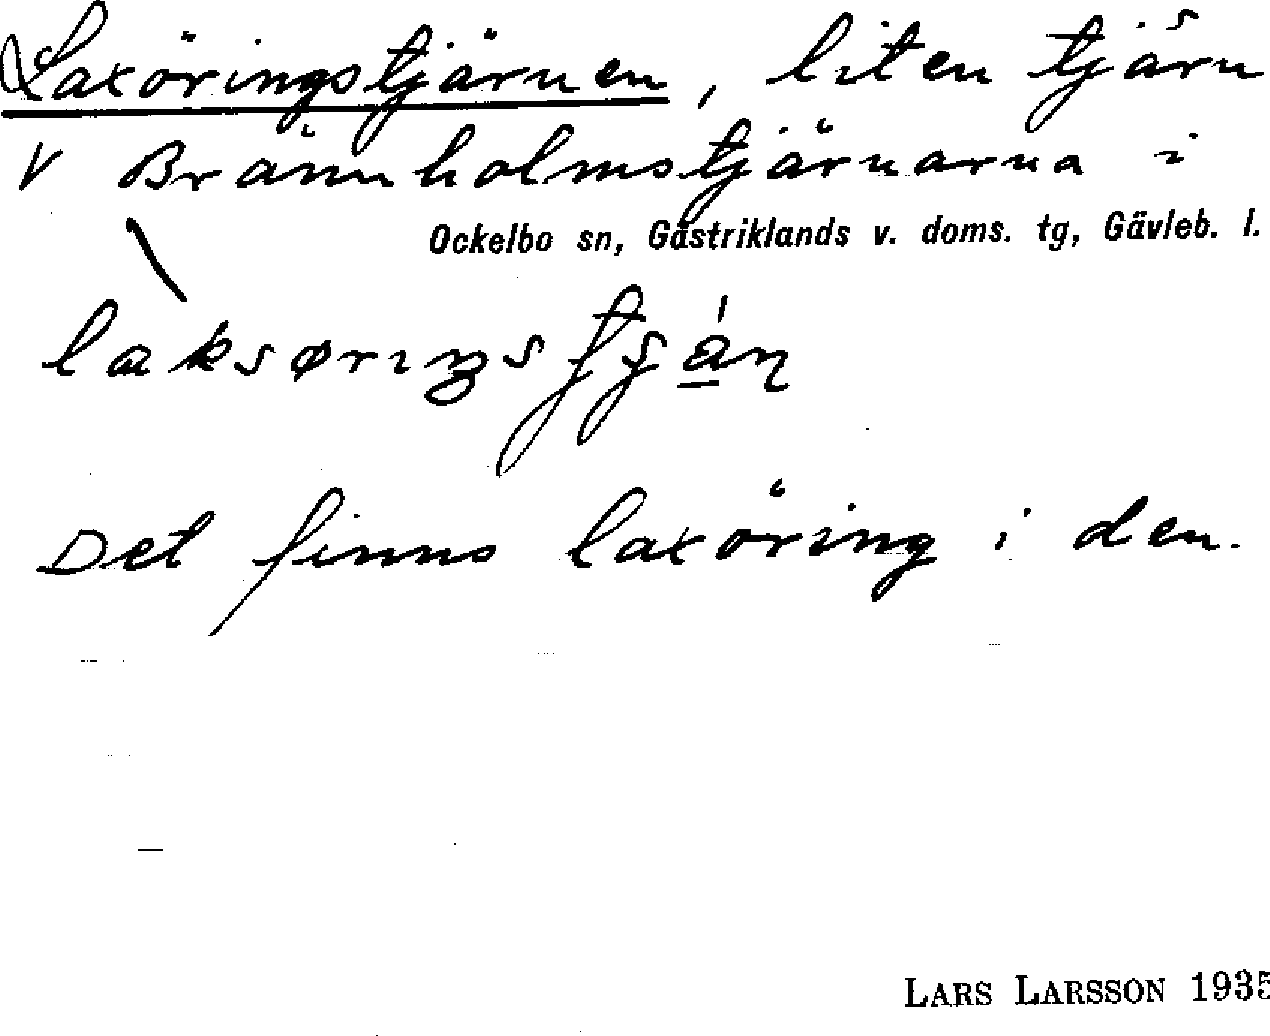 Laxöringstjärnen, liten tjärn
V Brännholmstjärnarna i
Ockelbo sn, Gästriklands v. doms. tg, Gävleb. l.
Det finns laxöring i den.
LARS LARSSON 1935